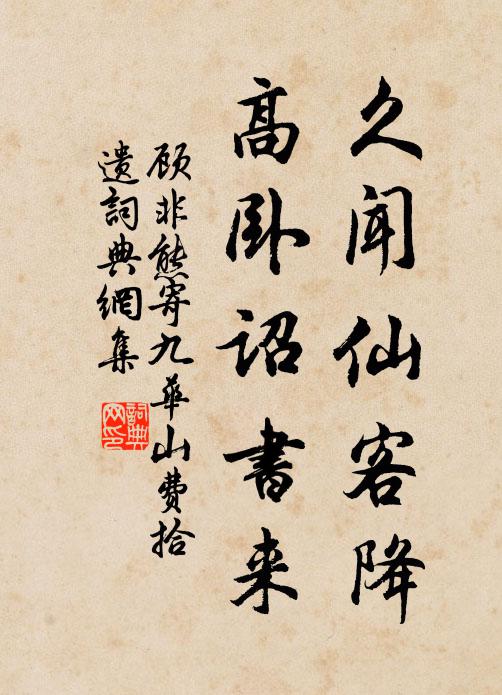 久闻仙客降
高卧詔書来
顾非熊寄九華山费拾
遗詞典網集
詞典网印